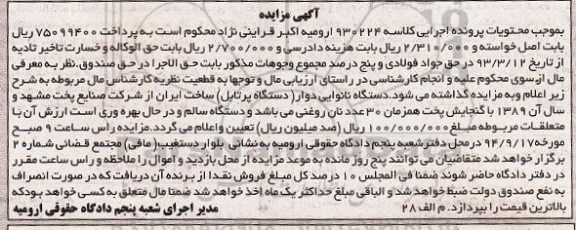 آگهی مزایده
بموجب محتویات پرونده اجرایی کلاسه ۹۳۰۲۲۴ ارومیه اکبر قراینی نژاد محکوم است به پرداخت ۷۵۰۹۹۴۰۰ ریال
بابت اصل خواسته و ۲/۳۱۰/۰۰۰ ریال بابت هزینه دادرسی و ۲/۷۰۰/۰۰۰ ریال بابت حق الوکاله و خسارت تاخیر تادیه
از تاریخ ۹۳/۳/۱۲ در حق جواد فولادی و پنج درصد مجموع وجوهات مذکور بابت حق الاجرا در حق صندوق. نظر به معرفی
مال از سوی محکوم علیه و انجام کارشناسی در راستای ارزیابی مال و توجها به قطعیت نظریه کارشناس مال مربوطه به شرح
زیر اعلام وبه مزایده گذاشته می شود. دستگاه نانوایی دوار ( دستگاه پرتابل) ساخت ایران از شرکت صنایع پخت مشهد و
سال آن ۱۳۸۹ با گنجایش پخت همزمان ۳۰ عدد نان روغنی می باشد و دستگاه سالم و در حال بهره وری است ارزش آن با
متعلقات مربوطه مبلغ ۱۰۰/۰۰۰/۰۰۰ ریال (صد میلیون ریال) تعیین و اعلام می گردد. مزایده راس ساعت ۹ صبح
مورخه ۹۴/۹/۱۷ در محل دفتر شعبه پنجم دادگاه حقوقی ارومیه به نشانی بلوار دستغیب (مافی) مجتمع قضائی شماره ۲
برگزار خواهد شد متقاضیان می توانند پنج روز مانده به موعد مزایده از محل بازدید و اموال را ملاحظه و راس ساعت مقرر
در دفتر دادگاه حاضر شوند ضمنا فی المجلس ۱۰ درصد کل مبلغ فروش نقدا از برنده آن دریافت که در صورت انصراف
به نفع صندوق دولت ضبط خواهد شد و الباقی مبلغ حداکثر یک ماه اخذ خواهد شد ضمنا مال متعلق به کسی خواهد بود که
بالاترین قیمت را بپردازد. م الف ۲۸ مدیر اجرای شعبه پنجم دادگاه حقوقی ارومیه